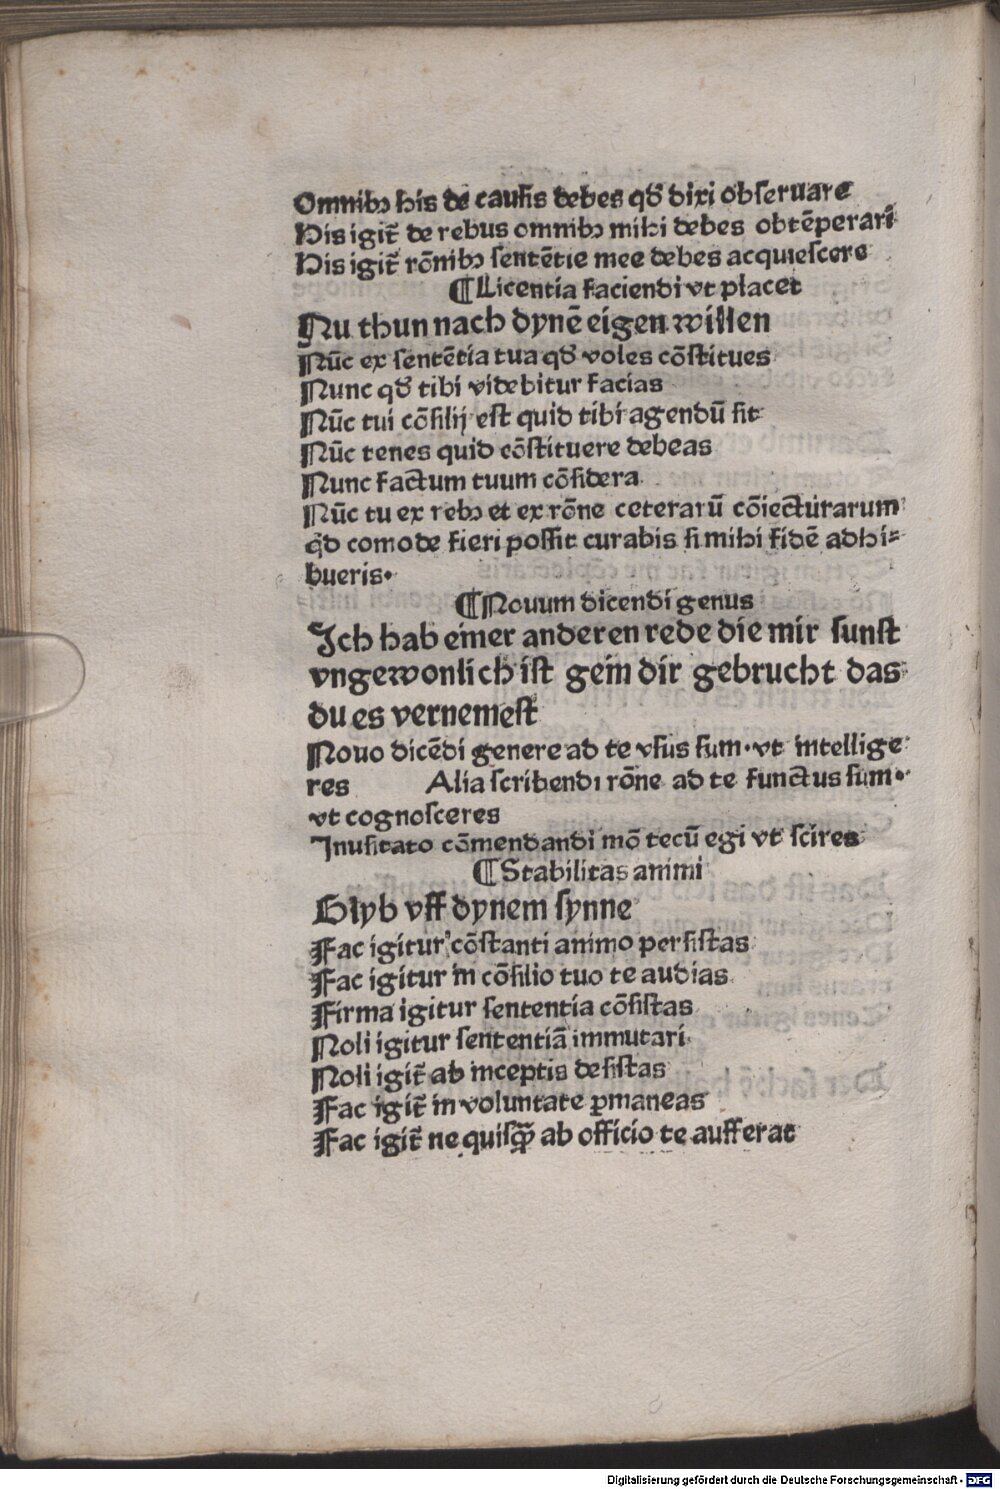 Omnibꝰ his de causis debes qđ dixi obseruare
His igit̄ de rebus omnibꝰ mihi debes obtēperari
His igit̄ rōnibꝰ sentētie mee debes acquiescere
¶Licentia faciendi vt placet
Nu thun nach dynē eigen willen
Nūc ex sentētia tua qđ voles cōstitues
Nunc qđ tibi videbitur facias
Nūc tui cōsilij est quid tibi agendū sit
Nūc tenes quid cōstituere debeas
Nunc factum tuum cōsidera
Nūc tu ex rebꝰ et ex rōne ceterarū cōiecturarum
qd comode fieri possit curabis si mihi fidē adhi⸗
bueris.
¶Nouum dicendi genus
Ich hab einer anderen rede die mir sunst
vngewonlich ist gein dir gebrucht das
du es vernemest
Nouo dicēdi genere ad te vsus sum. vt intellige
res Alia scribendi rōne ad te functus sum.
vt cognosceres
Inusitato cōmendandi mō tecū egi vt scires
¶Stabilitas animi
Blyb vff dynem synne
Fac igitur cōstanti animo persistas
Fac igitur in cōsilio tuo te audias
Firma igitur sententia cōsistas
Noli igitur sententiā immutari
Noli igit̄ ab inceptis desistas
Fac igit̄ in voluntate ꝑmaneas
Fac igit̄ ne quisq̄ȝ ab officio te aufferat
Digitalisierung gefördert durch die Deutsche Forschungsgemeinschaft - DFG